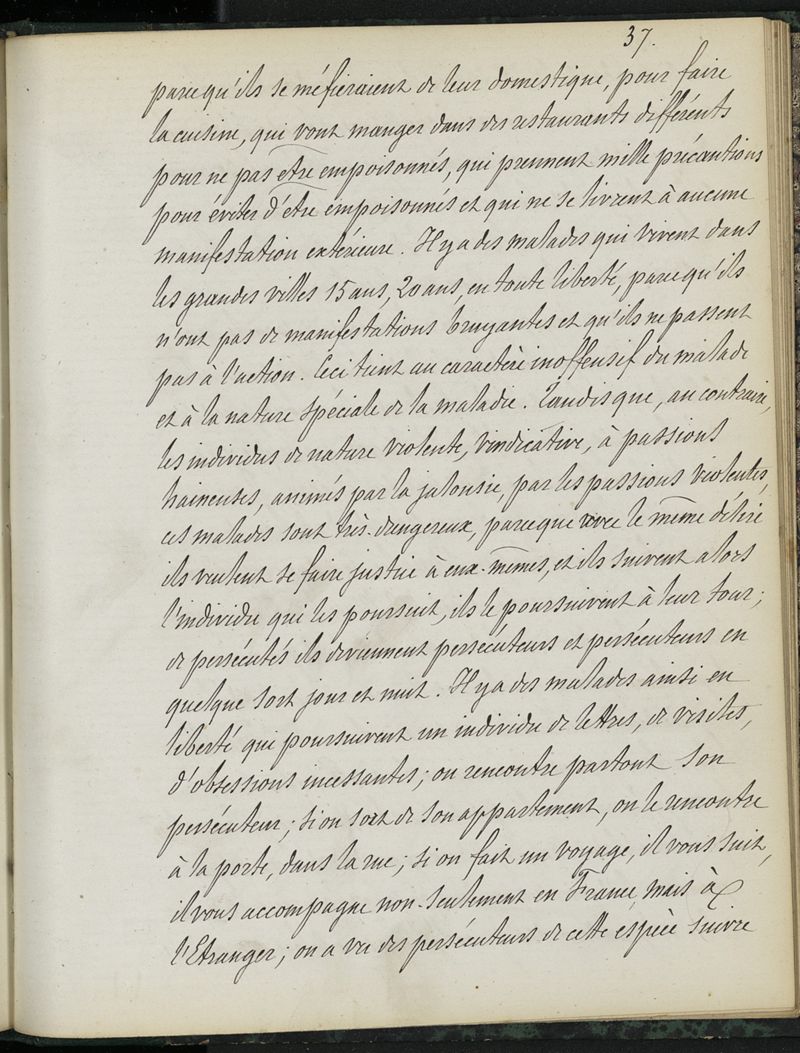 37.
parce qu'ils se méfieraient de leur domestique, pour faire
la cuisine, qui vont manger dans des restaurants différents
pour ne pas être empoisonnés, qui prennent mille précautions
pour éviter d'être empoisonnés et qui ne se livrent à aucune
manifestation extérieure. Il y a des malades qui vivent dans
les grandes villes 15 ans, 20 ans, en toute liberté, parce qu'ils
n'ont pas de manifestations bruyantes et qu'ils ne passent
pas à l'action. Ceci tient au caractère inoffensif du malade
et à la nature spéciale de la maladie. Tandis que, au contraire,
les individus de nature violente, vindicative, à passions
haineuses, animés par la jalousie, par les passions violentes,
ces malades sont très-dangereux, parce que avec le même délire
ils veulent se faire justice à eux-mêmes, et ils suivent alors
l'individu qui les poursuit, ils le poursuivent à leur tour;
de persécutés ils deviennent persécuteurs et persécuteurs en
quelque sort jour et nuit. Il y a des malades ainsi en
liberté qui poursuivent un individu de lettres, de visites,
d'obsessions incessantes; on rencontre partout son
persécuteur; si on sort de son appartement, on le rencontre
à la porte, dans la rue; si on fait un voyage, il vous suit,
il vous accompagne non-seulement en France, mais à
l'Etranger; on a vu des persécuteurs de cette espèce suivre